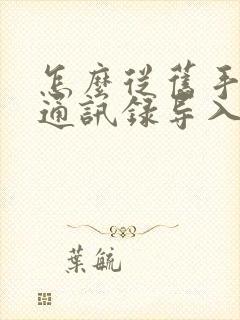 怎麼從舊手
通訊錄导入
葉航